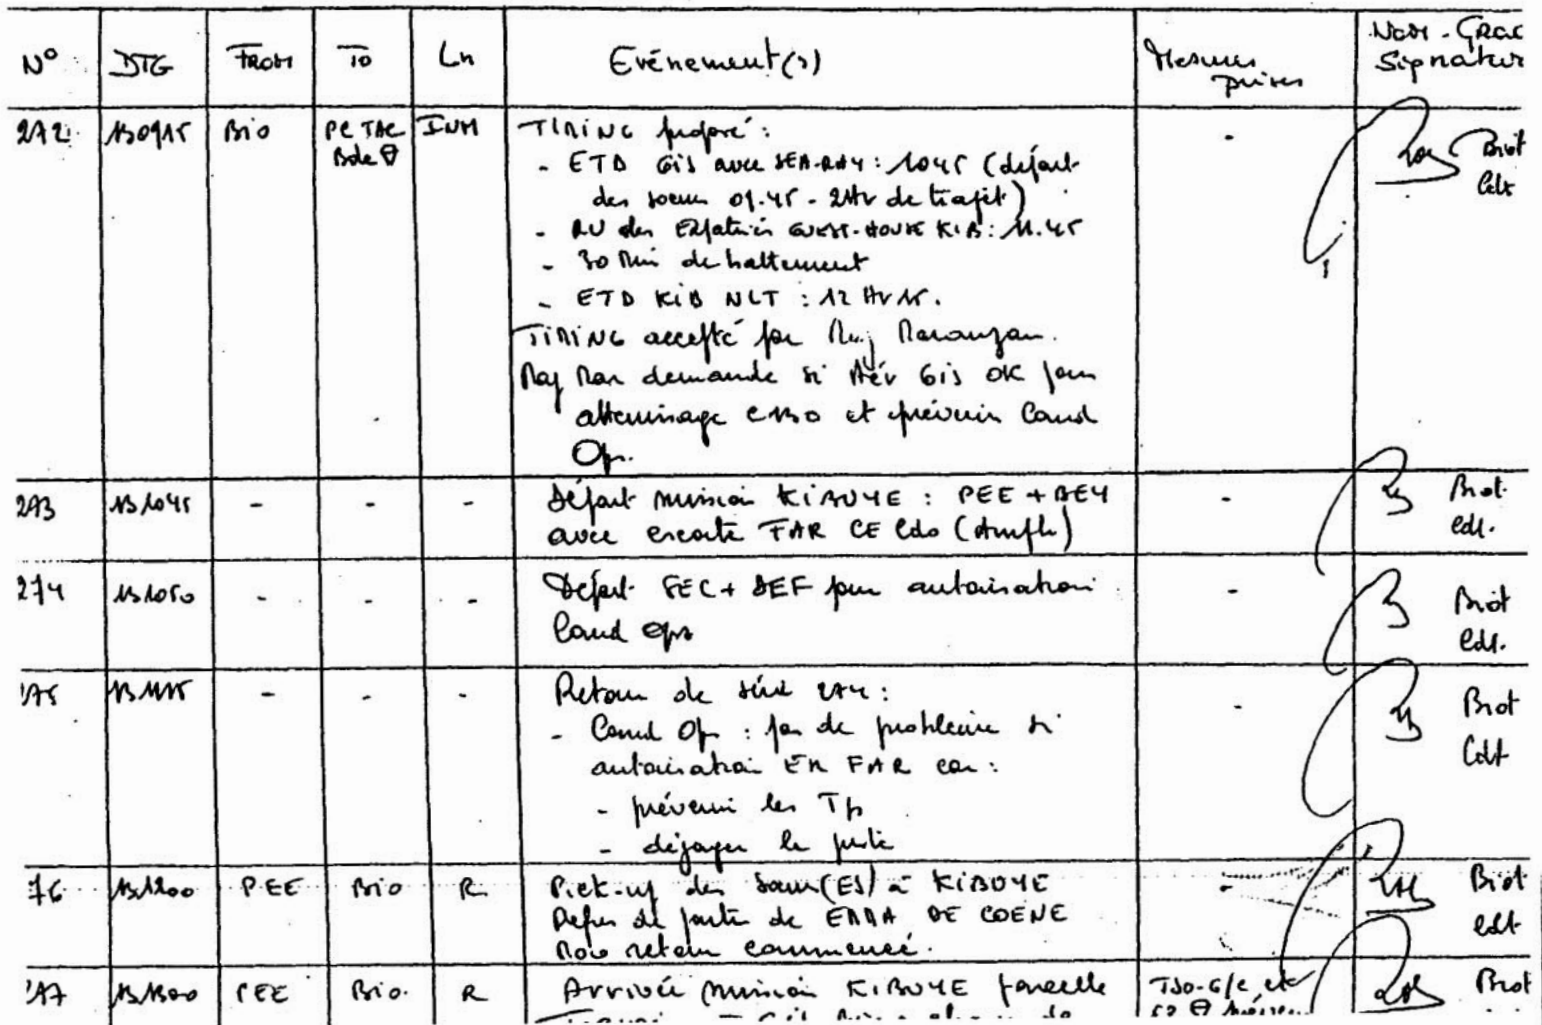 N° DTG FROM To Ln Evénement(s) Mesures prises Nom - Grade Signature
272 130915 Bio PC TAC Bde INM TIMING proposé : - Biot Cdt
- ETD Gis avec SEA-RAY : 1045 (départ
des soeurs 09.45 - 2Hr de trajet)
- RV des Expatriés GUEST-HOUSE KIB : 11.45
- 30 Min de battement
- ETD KIB NLT : 12 Hr 15.
TIMING accepté par Maj
Maj Mar demande si Aér Gis OK pour
atterrissage C130 et prévenir Comd
Op.
273 131045 - - - Départ mission KIBUYE : PEE + BEY - Biot
avec escorte FAR CE Cdo Cdt.
274 131050 - - - Départ SEC + DEF pour autorisation - Biot
Comd Ops Cdt.
275 131115 - - - Retour de série 274 : - Biot
- Comd Op : pas de problème si Cdt
autorisation EM FAR car :
- prévenir les Tp
- dégager la piste
76 131200 PEE Bio R Pick-up des Soeur(ES) à KIBUYE - Biot
Refus de partir de EMMA DE COENE Cdt
Now retour commencé.
277 131300 PEE Bio. R Arrivée mission KIBUYE parcelle Biot